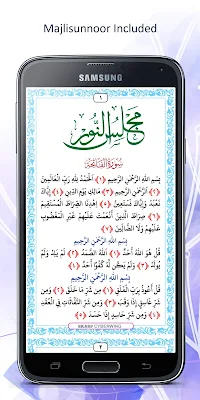 Majlisunnoor Included
SAMSUNG
١
مجلس النور
سورة الفاتحة
بِسْمِ اللهِ الرَّحْمٰنِ الرَّحِيمِ ﴿١﴾ اَلْحَمْدُ لِلّٰهِ رَبِّ الْعَالَمِينَ
﴿٢﴾ اَلرَّحْمٰنِ الرَّحِيمِ ﴿٣﴾ مَالِكِ يَوْمِ الدِّينِ ﴿٤﴾ إِيَّاكَ
نَعْبُدُ وَإِيَّاكَ نَسْتَعِينُ ﴿٥﴾ اِهْدِنَا الصِّرَاطَ الْمُسْتَقِيمَ
﴿٦﴾ صِرَاطَ الَّذِينَ أَنْعَمْتَ عَلَيْهِمْ غَيْرِ الْمَغْضُوبِ
عَلَيْهِمْ وَلَا الضَّالِّينَ ﴿٧﴾
بِسْمِ اللهِ الرَّحْمٰنِ الرَّحِيمِ
قُلْ هُوَ اللهُ أَحَدٌ ﴿١﴾ اَللهُ الصَّمَدُ ﴿٢﴾ لَمْ يَلِدْ وَلَمْ
يُولَدْ ﴿٣﴾ وَلَمْ يَكُنْ لَهُ كُفُوًا أَحَدٌ ﴿٤﴾
بِسْمِ اللهِ الرَّحْمٰنِ الرَّحِيمِ
قُلْ أَعُوذُ بِرَبِّ الْفَلَقِ ﴿١﴾ مِنْ شَرِّ مَا خَلَقَ ﴿٢﴾ وَمِنْ
شَرِّ غَاسِقٍ إِذَا وَقَبَ ﴿٣﴾ وَمِنْ شَرِّ النَّفَّاثَاتِ فِي الْعُقَدِ
﴿٤﴾ وَمِنْ شَرِّ حَاسِدٍ إِذَا حَسَدَ ﴿٥﴾
CYBERWING
٢